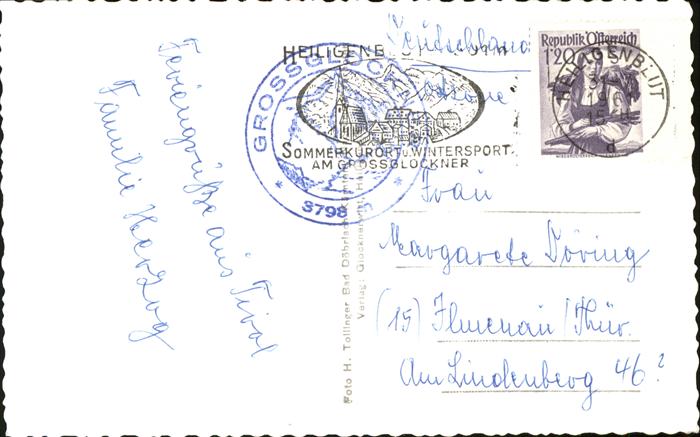 Feriengrüße aus Tirol
Familie Herzog
Deutschland
Ostzone
HEILIGENBLUT
SOMMERKURORT U. WINTERSPORT
AM GROSSGLOCKNER
GROSSGLOCKNER
* 3798 m *
Republik Österreich
1·20
HEILIGENBLUT
d
Frau
Margarete Döring
(15) Ilmenau/Thür.
Am Lindenberg 46?
Foto H. Tollinger Bad Döhrlach
Verlag: Glockner